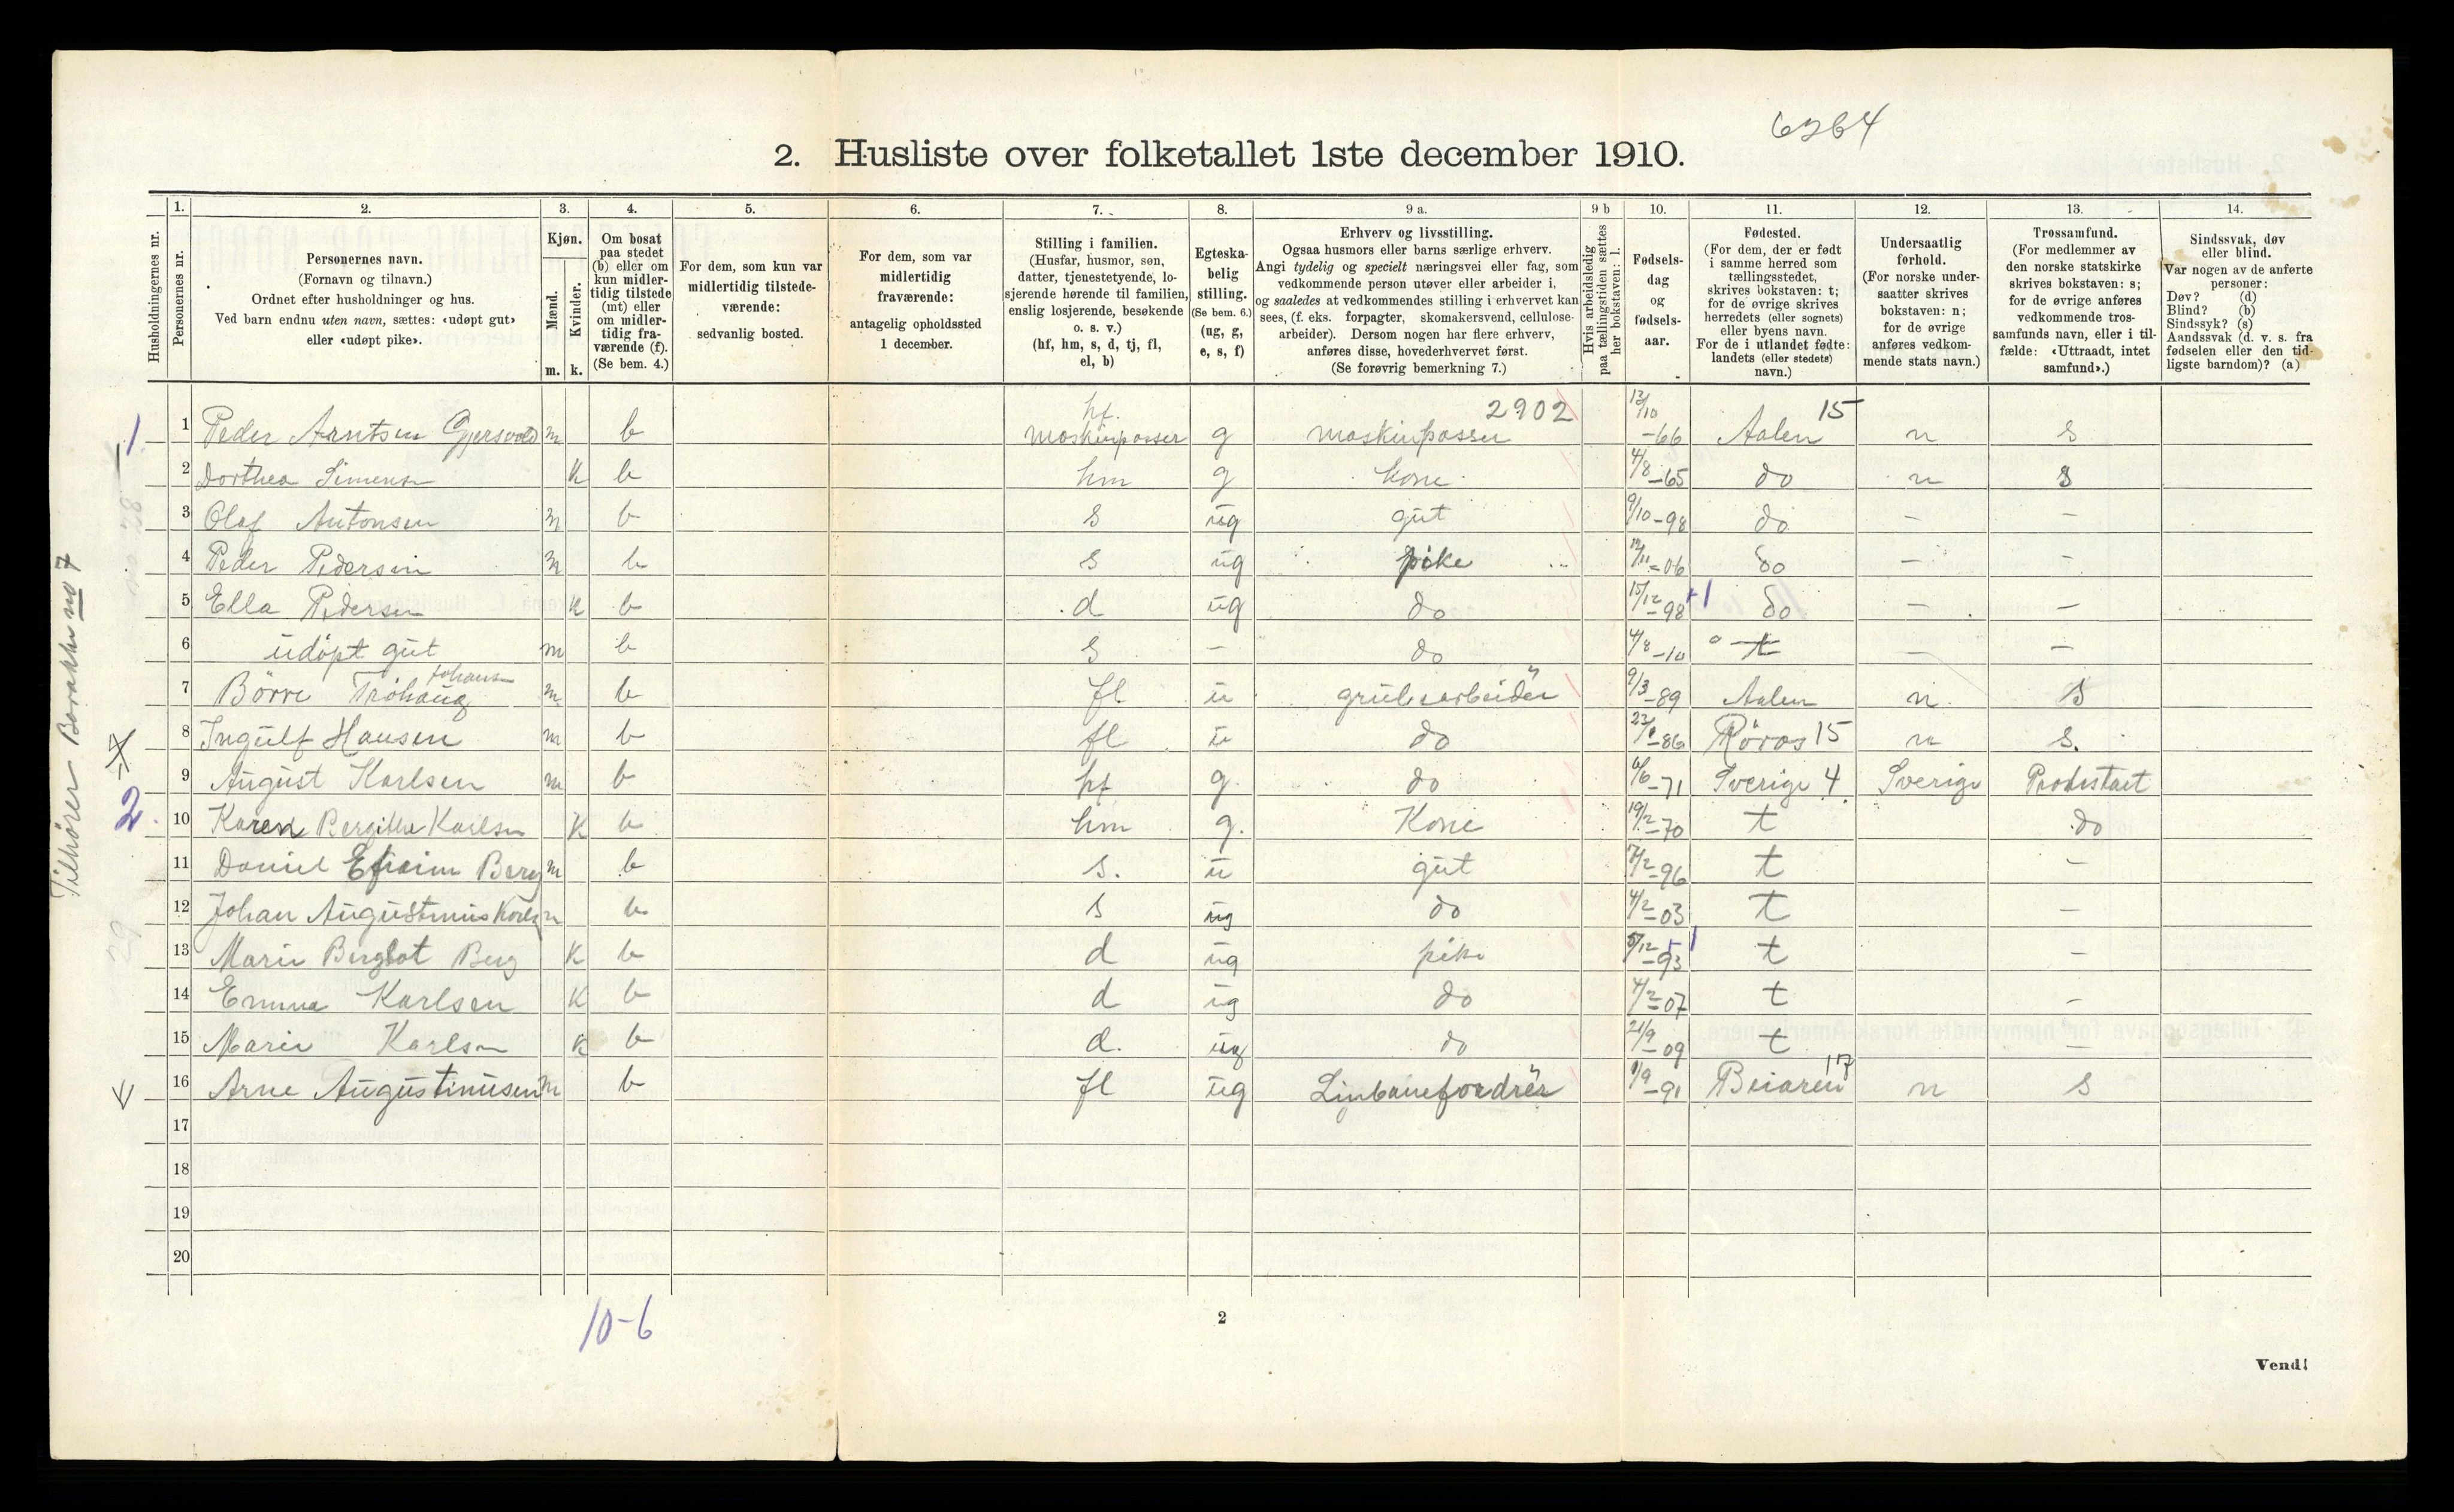 6264
2. Husliste over folketallet 1ste december 1910.
Husholdningernes nr.
1. Personernes nr.
2. Personernes navn. (Fornavn og tilnavn.) Ordnet efter husholdninger og hus. Ved barn endnu uten navn, sættes: «udøpt gut» eller «udøpt pike».
3. Kjøn. Mænd. m. Kvinder. k.
4. Om bosat paa stedet (b) eller om kun midlertidig tilstede (mt) eller om midlertidig fraværende (f). (Se bem. 4.)
5. For dem, som kun var midlertidig tilstedeværende: sedvanlig bosted.
6. For dem, som var midlertidig fraværende: antagelig opholdssted 1 december.
7. Stilling i familien. (Husfar, husmor, søn, datter, tjenestetyende, losjerende hørende til familien, enslig losjerende, besøkende o. s. v.) (hf, hm, s, d, tj, fl, el, b)
8. Egteskabelig stilling. (Se bem. 6.) (ug, g, e, s, f)
9 a. Erhverv og livsstilling. Ogsaa husmors eller barns særlige erhverv. Angi tydelig og specielt næringsvei eller fag, som vedkommende person utøver eller arbeider i, og saaledes at vedkommendes stilling i erhvervet kan sees, (f. eks. forpagter, skomakersvend, cellulosearbeider). Dersom nogen har flere erhverv, anføres disse, hovederhvervet først. (Se forøvrig bemerkning 7.)
9 b Hvis arbeidsledig paa tællingstiden sættes her bokstaven: l.
10. Fødselsdag og fødselsaar.
11. Fødested. (For dem, der er født i samme herred som tællingsstedet, skrives bokstaven: t; for de øvrige skrives herredets (eller sognets) eller byens navn. For de i utlandet fødte: landets (eller stedets) navn.)
12. Undersaatlig forhold. (For norske undersaatter skrives bokstaven: n; for de øvrige anføres vedkommende stats navn.)
13. Trossamfund. (For medlemmer av den norske statskirke skrives bokstaven: s; for de øvrige anføres vedkommende trossamfunds navn, eller i tilfælde: «Uttraadt, intet samfund».)
14. Sindssvak, døv eller blind. Var nogen av de anførte personer: Døv? (d) Blind? (b) Sindssyk? (s) Aandssvak (d. v. s. fra fødselen eller den tidligste barndom)? (a)
Tilhører Barakke no 7
1. 1 Peder Arntsen Gjersvold m b hf. maskinpasser g maskinpasser 2902 12/10 -66 Aalen 15 n s
2 Dorthea Simensen K b hm g kone 4/8 -65 do n s
3 Olaf Antonsen m b s ug gut 9/10 -98 do - -
4 Peder Pedersen m b s ug pike 12/11 -06 do - -
5 Ella Pedersen K b d ug do 15/12 -98 +1 do - -
6 udøpt gut m b s - do 4/8 -10 t - -
7 Börre Trøhaug Johansen m b fl u grubearbeider 9/3 -89 Aalen n s
8 Ingulf Hansen m b fl u do -86 Röros 15 n s.
2. 9 August Karlsen m b hf g. do 6/6 -71 Sverige 4 Sverige Protestant
10 Karen Bergitte Karlsen K b hm g. Kone 19/12 -70 t do
11 Daniel Efraim Berg m b s. u gut 7/2 -96 t -
12 Johan Augustinus Karlsen m b s ug do 4/2 -03 t -
13 Marie Bergliot Berg K b d ug pike 5/12 -93 +1 t -
14 Emma Karlsen K b d ug do 4/2 -07 t -
15 Marie Karlsen K b d. ug do 21/9 -09 t -
16 Arne Augustinusen m b fl ug Linbanefordrer 1/9 -91 Beiaren 17 n s
17
18
19
20
10-6
2
Vend!